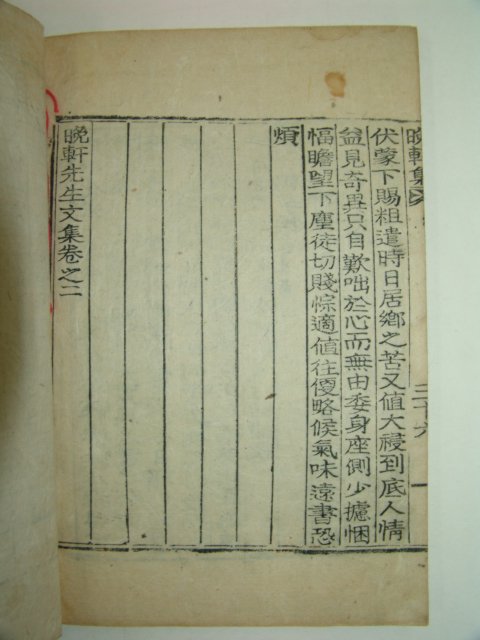 晩軒集
二十六
伏蒙下賜粗遣時日居鄉之苦又值大祲到底人情
益見奇異只自歎咄於心而無由委身座側少攄悃
愊瞻望下塵徒切賤悰適值往便略候氣味遠書恐
煩
晩軒先生文集卷之二